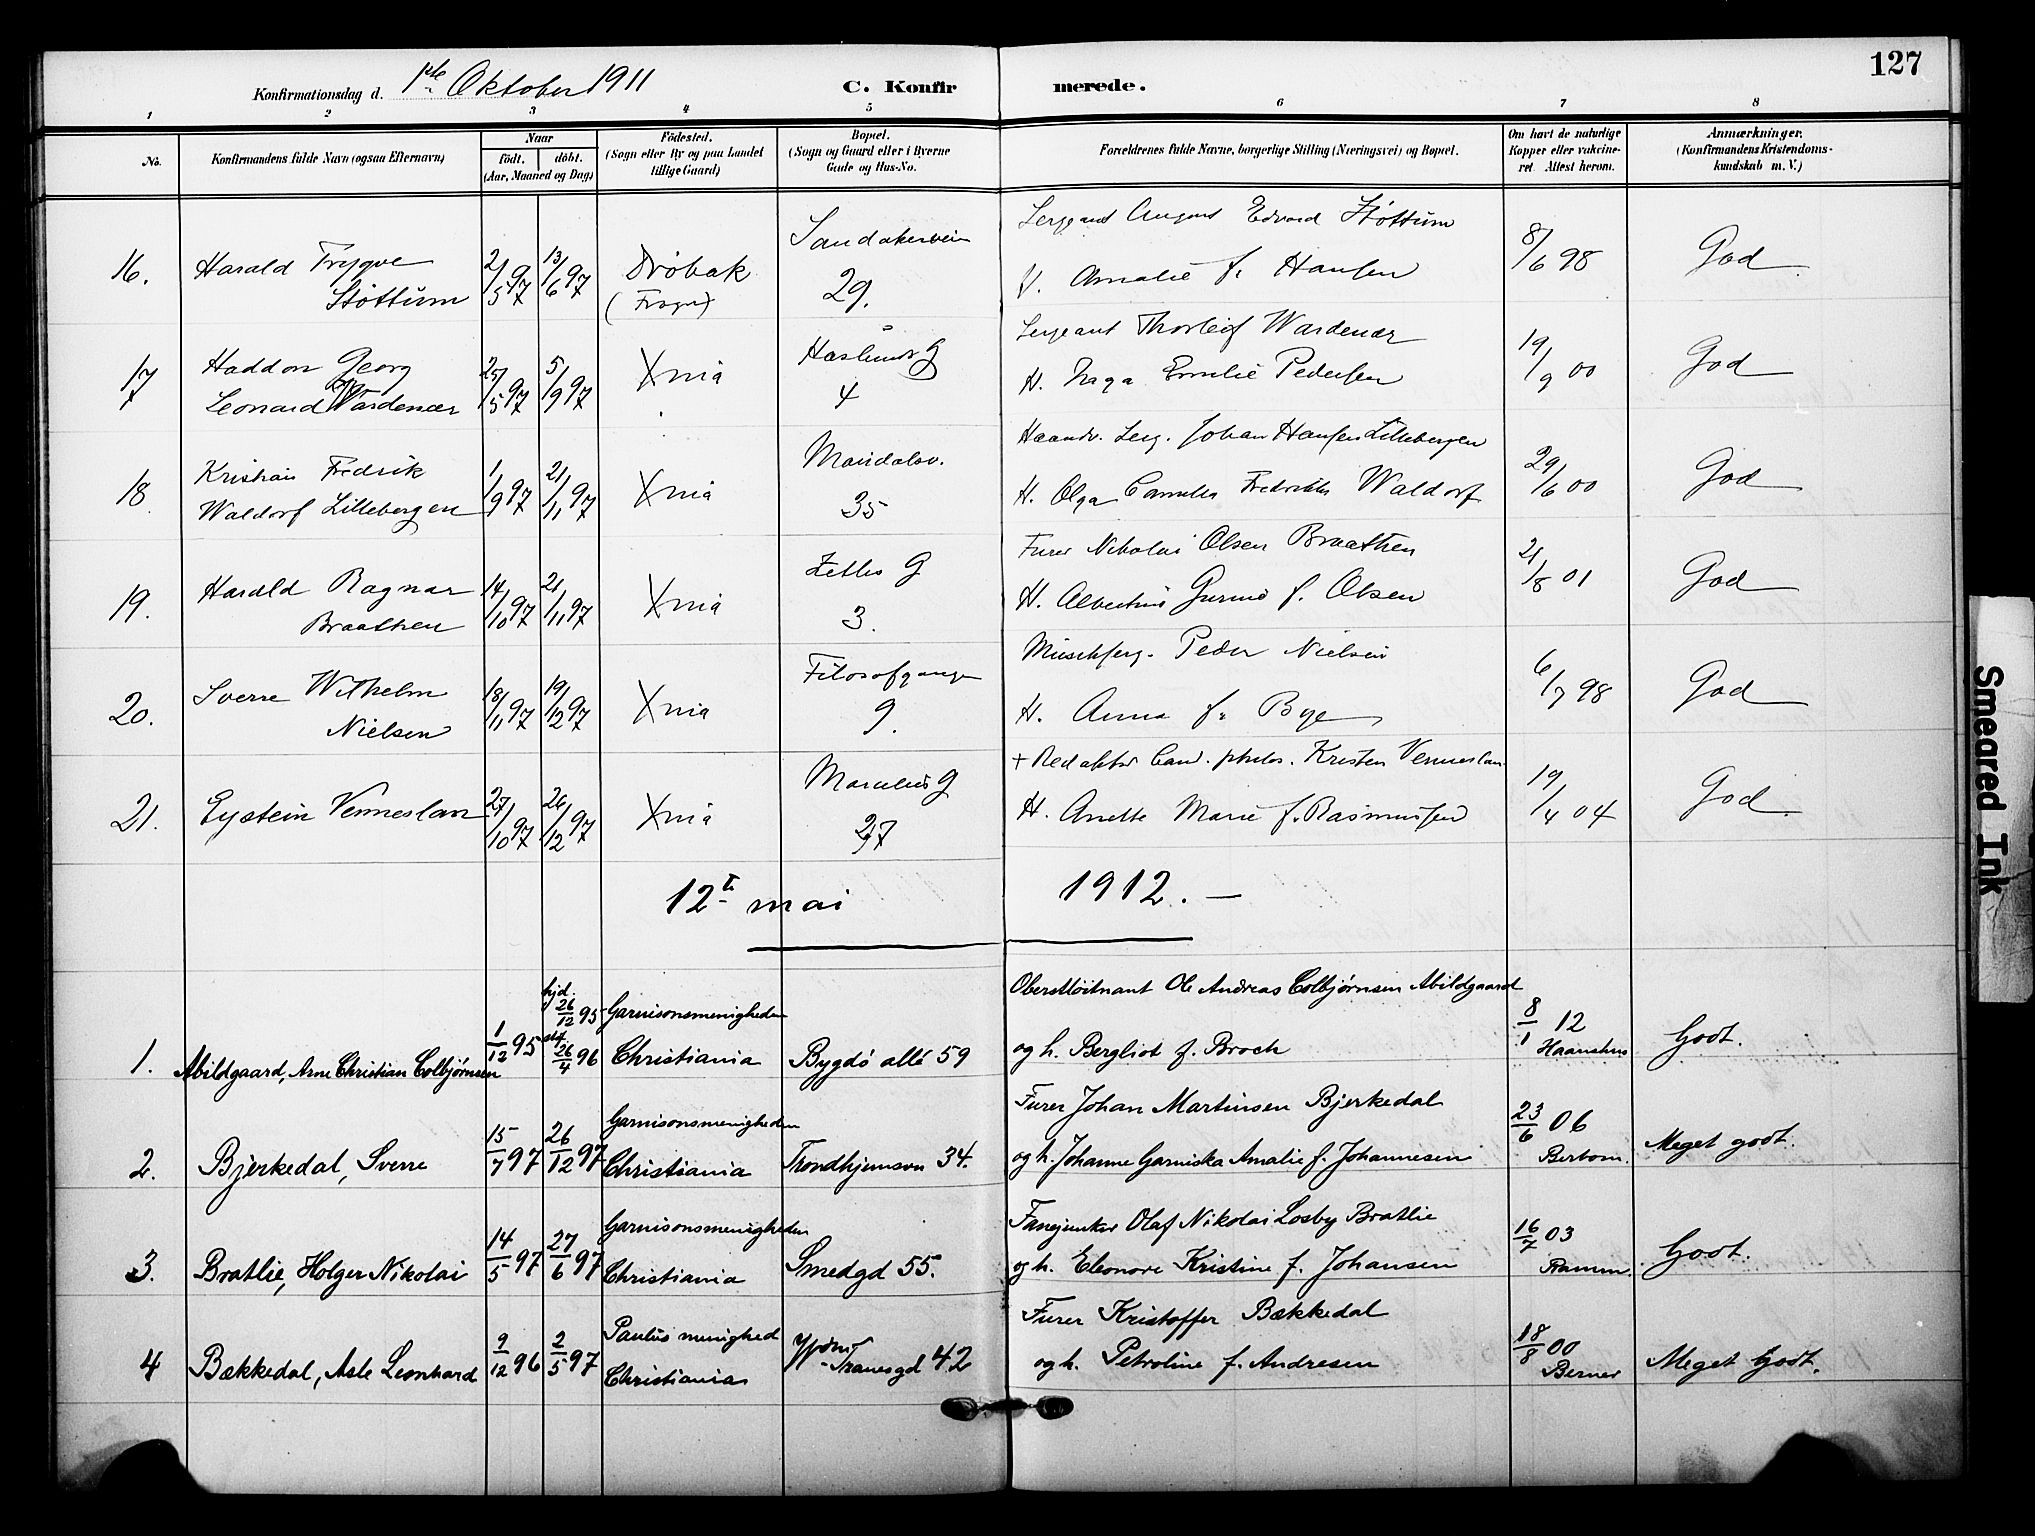 127
Konfirmationsdag d. 1ste Oktober 1911 C. Konfirmerede.
1 2 3 4 5 6 7 8
No. Konfirmandens fulde Navn (ogsaa Efternavn) Naar født. døbt. (Aar, Maaned og Dag) Födested. (Sogn eller By og paa Landet tillige Gaard) Bopæl. (Sogn og Gaard eller i Byerne Gade og Hus-No. Forældrenes fulde Navne, borgerlige Stilling (Næringsvei) og Bopæl. Om havt de naturlige Kopper eller vakcineret. Attest herom. Anmærkninger. (Konfirmandens Kristendomskundskab m. V.)
16. Harald Trygve Støttum 2/5 97 13/6 97 Drøbak (Frogn) Sandakerveien 29. Sergeant August Edvard Støttum H. Amalie f. Hansen 8/6 98 God
17 Haddon Georg Leonard Wardenær 25/5 97 5/9 97 Xnia 4 Sergeant Thorleif Wardenær H. Emelie Pedersen 19/9 00 God
18 Kristian Fredrik Waldorf Lillebergen 1/9 97 21/11 97 Xnia Maridalsv. 35 Haandv. Serg. Johan Hansen Lillebergen H. Olga Camilla Fredrikke Waldorf 29/6 00 God
19. Harald Ragnar Braathen 14/10 97 21/11 97 Xnia Zetlis G 3. Furer Nikolai Olsen Braathen H. Albertine f. Olsen 21/8 01 God
20. Sverre Wilhelm Nielsen 18/11 97 19/12 97 Xnia Filosofgangen 9. Peder Nielsen H. Anna f. Bye 6/7 98 God
21. Eystein Venneslan 27/10 97 26/12 97 Xnia 27 + Redaktør Cand. philos. Kristen Venneslan H. Anette Marie f. Rasmussen 19/4 04 God
12te mai 1912. —
1. Abildgaard, Arne Christian Colbjørnsen 1/12 95 hjd. 26/12 95 stf. 26/4 96 Garnisonsmenigheden Christiania Bygdö allé 59 Oberstløitnant Ole Andreas Colbjørnsen Abildgaard og h. Bergliot f. Broch 8/1 12 Haanshus Godt.
2. Bjerkedal, Sverre 15/7 97 26/12 97 Garnisonsmenigheden Christiania Trondhjemsvn 34. Furer Johan Martinsen Bjerkedal og h. Johanne Garniska Amalie f. Johannesen 23/6 06 Berbom. Meget godt.
3. Bratlie, Holger Nikolai 14/5 97 27/6 97 Garnisonsmenigheden Christiania Smedgd 55. Fanejunker Olaf Nikolai Losby Bratlie og h. Eleonore Kristine f. Johansen 16/7 03 Ramm. Godt.
4 Bækkedal, Asle Leonhard 9/12 96 2/5 97 Paulus menighed Christiania Tranesgd 42 Furer Kristoffer Bækkedal og h. Petroline f. Andresen 18/8 00 Berner Meget Godt.
Smeared Ink